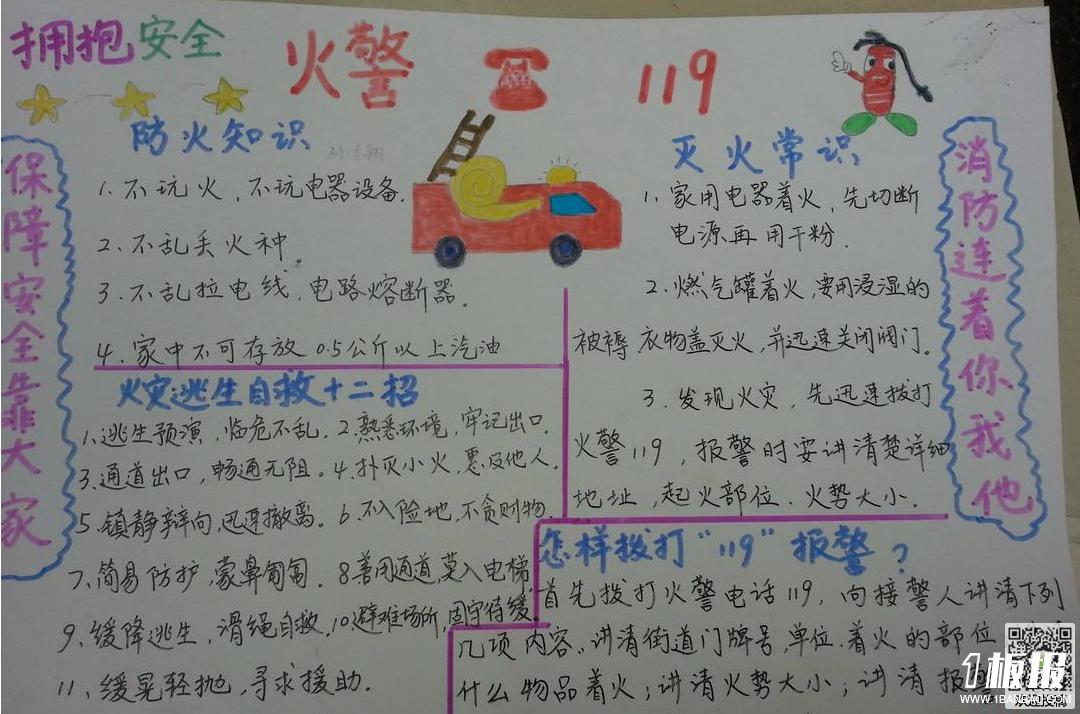 拥抱安全
火警 119
保障安全靠大家
防火知识
1.不玩火、不玩电器设备.
2.不乱丢火种。
3.不乱拉电线、电路熔断器。
4.家中不可存放0.5公斤以上汽油
火灾逃生自救十二招
1、逃生预演，临危不乱.2.熟悉环境,牢记出口.
3.通道出口，畅通无阻。4.扑灭小火，惠及他人.
5、镇静辩向,迅速撤离。6.不入险地,不贪财物.
7、简易防护,蒙鼻匍匐.8.善用通道莫入电梯
9、缓降逃生,滑绳自救.10.避难场所,固守待援.
11、缓晃轻抛,寻求援助.
灭火常识
1、家用电器着火,先切断
电源再用干粉.
2、燃气罐着火,要用浸湿的
被褥、衣物盖灭火,并迅速关闭阀门。
3.发现火灾,先迅速拨打
火警119,报警时要讲清楚详细
地址,起火部位、火势大小.
消防连着你我他
怎样拨打"119"报警?
首先拨打火警电话119,向接警人讲清下列
几项内容.讲清街道门牌号,单位.着火的部位
什么物品着火;讲清火势大小;讲清报
1板报
WWW.1BANBAO.COM
欢迎投稿